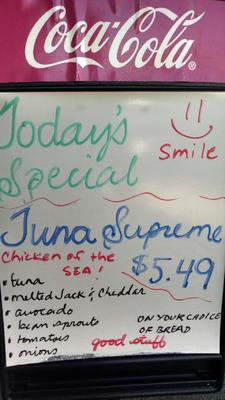 Coca-Cola
Today's
Special
Smile
Tuna Supreme
Chicken of the
SEA!
$5.49
• tuna
• melted Jack & Cheddar
• avocado
• bean sprouts
• tomatoes
• onions
ON YOUR CHOICE
OF BREAD
good stuff